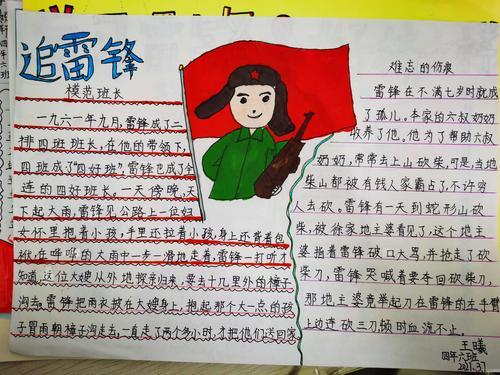 追雷锋
模范班长
一九六一年九月,雷锋成了二
排四班班长,在他的带领下,
四班成了“四好班”,雷锋也成了全
连的四好班长。一天傍晚,天
下起大雨,雷锋见公路上一位妇
女怀里抱着小孩,手里还拉着小孩,身上还背着包
袱,在哗哗的大雨中一步一滑地走着,雷锋一打听才
知道,这位大嫂从外地探亲归来,要去十几里外的樟子
沟去。雷锋把雨衣披在大嫂身上,抱起那个大一点的孩
子冒雨朝樟子沟走去,一直走了两个多小时,才把他们送回家
难忘的伤痕
雷锋在不满七岁时就成
了孤儿。本家的六叔奶奶
收养了他。他为了帮助六叔
奶奶,常常去上山砍柴,可是,当地
柴山都被有钱人家霸占了,不许穷
人去砍。雷锋有一天到蛇形山砍
柴,被徐家地主婆看见了,这个地主
婆指着雷锋破口大骂,并抢走了砍
柴刀,雷锋哭喊着要夺回砍柴刀,
那地主婆竟举起刀在雷锋的左手臂
上边连砍三刀,顿时血流不止。
王曦
四年六班
2021.3.7